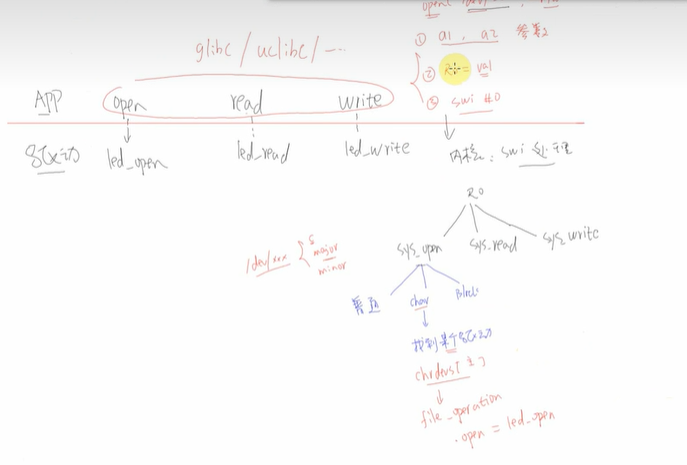 open(
glibc / uclibc / ...
① a1, a2 参数
② = val
③ swi #0
APP open read write
驱动 led_open led_read led_write 内核: swi 处理
R0
sys_open sys_read sys_write
/dev/xxx { c major minor
普通 char Block
找到某个驱动
chrdevs[主]
file_operation
.open = led_open